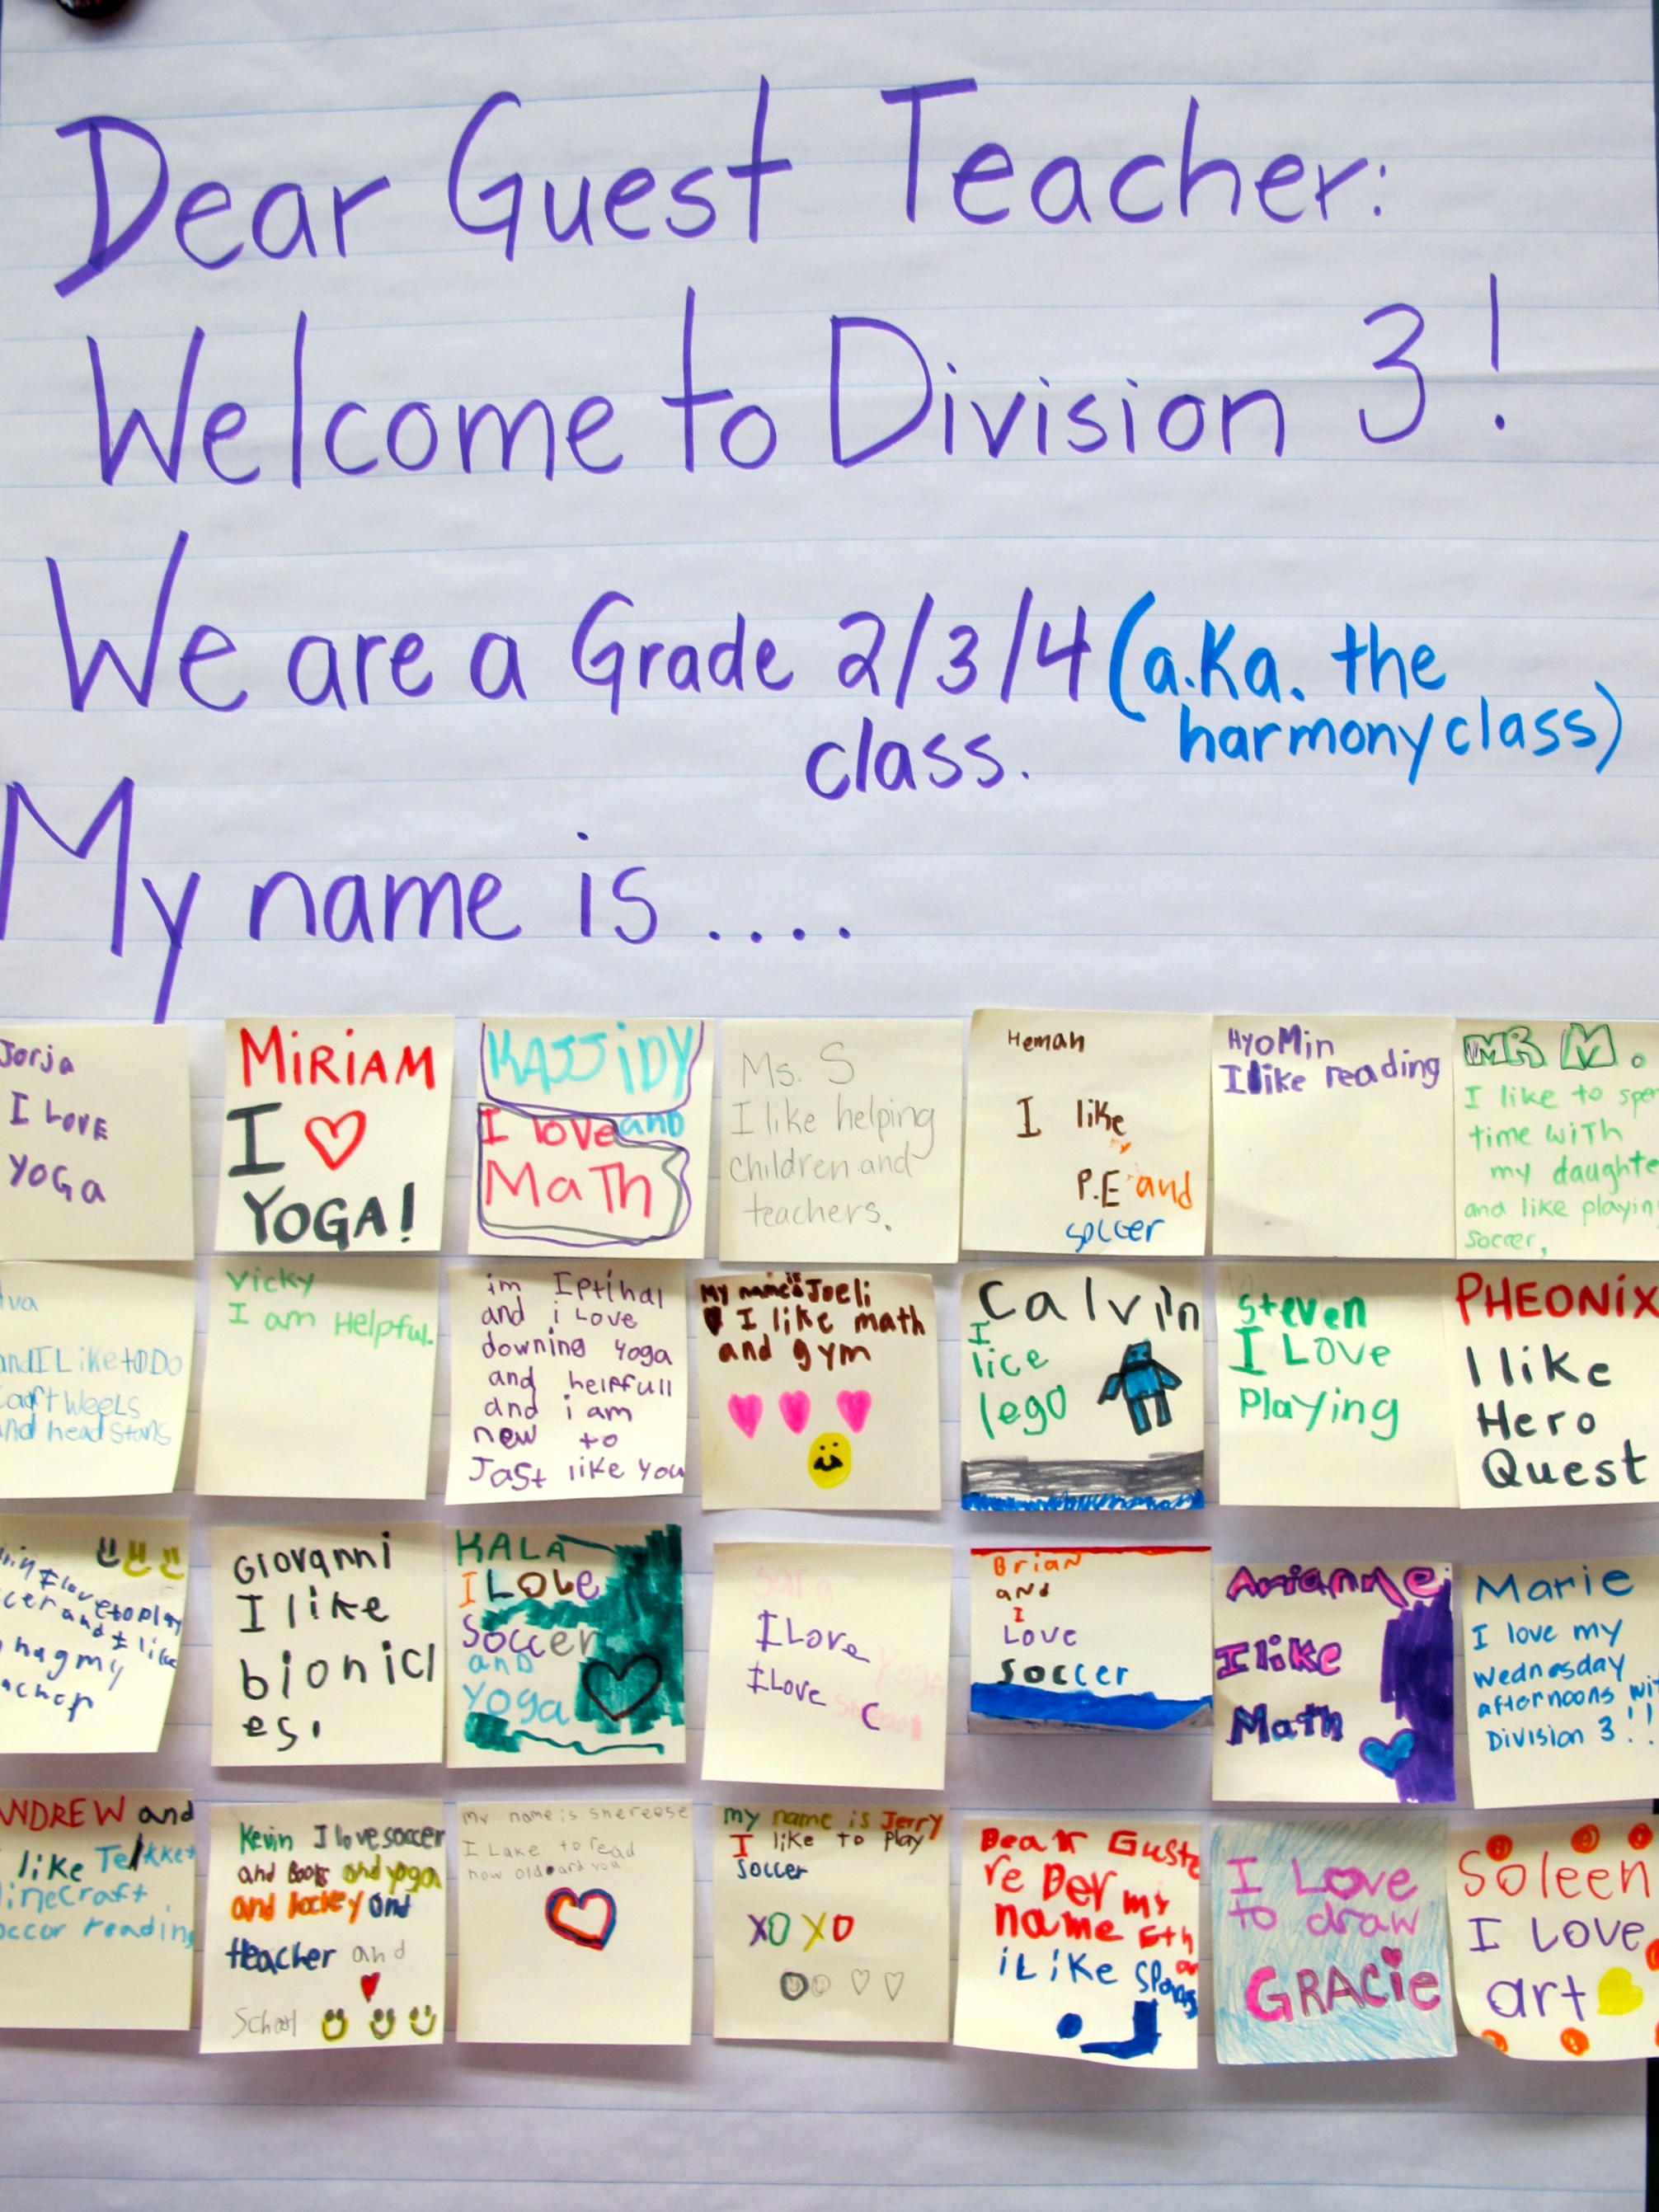 Dear Guest Teacher:
Welcome to Division 3!
We are a Grade 2/3/4 (a.ka. the
class. harmony class)
My name is ....
Jorja
I LOVE
YOGa
MiRiAM
I ♡
YOGA!
KASSiDY
I love and
MaTh
Ms. S
I like helping
children and
teachers.
Heman
I like
P.E and
soccer
HyoMin
I like reading
MR M.
I like to spe
time with
my daughte
and like playin
soccer,
va
and I Like to Do
cart weels
nd head stans
Vicky
I am Helpful.
im Iptihal
and i Love
downing yoga
and helpfull
and i am
new to
Jast like you
My name is Joeli
I like math
and gym
Calvin
I
lice
lego
Steven
I LOVE
Playing
PHEONiX
I like
Hero
Quest
I love to play
cer and I like
hug my
Giovanni
I like
bionicl
es.
KALA
I LOVE
Soccer
and
yoga
Sara
I Love Yoga
I Love
C
Brian
and
I
Love
soccer
Arianne
I like
Math
Marie
I love my
Wednesday
afternoons wit
Division 3!!
NDREW and
like
inecraft
occor reading
Kevin I love soccer
and Books and yoga
and hockey and
teacher and
School
my name is shereese
I Lake to read
how old ard you
my name is Jerry
I like to play
soccer
XO XO
Dear Guste
re Der my
name Eth
iLike Sports
I Love
to draw
GRACie
Soleen
I Love
art